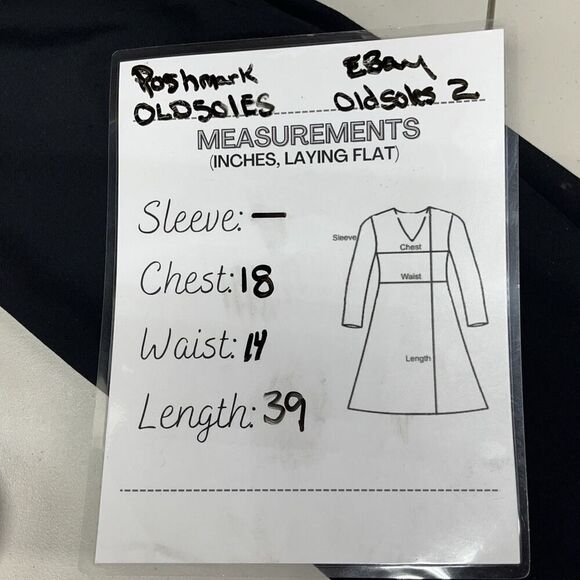 Poshmark EBay
OLDSOLES Oldsoles 2
MEASUREMENTS
(INCHES, LAYING FLAT)
Sleeve: —
Chest: 18
Waist: 14
Length: 39
Sleeve
Chest
Waist
Length